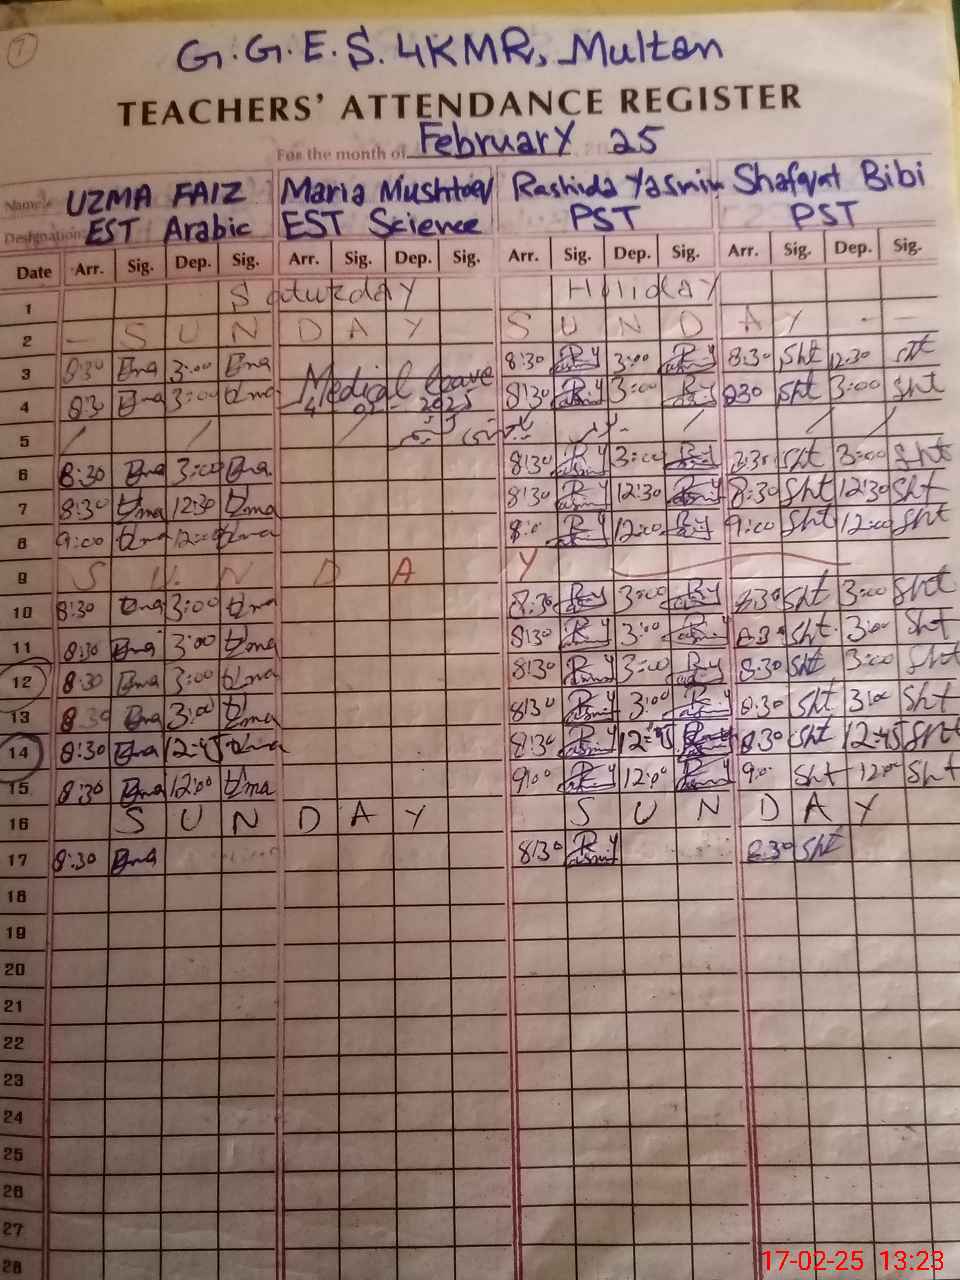 7
G.G.E.S. 4KMR, Multan
TEACHERS' ATTENDANCE REGISTER
For the month of February 25
Name UZMA FAIZ Maria Mushtaq Rashida Yasmin Shafqat Bibi
Designation EST Arabic EST Science PST PST
Date Arr. Sig. Dep. Sig. Arr. Sig. Dep. Sig. Arr. Sig. Dep. Sig. Arr. Sig. Dep. Sig.
1 Saturday Holiday
2 - S U N D A Y S U N D A Y - -
3 8:30 3:00 Medical leave 8:30 3:00 8:30 Sht 12:30 Sht
4 8:30 3:00 2025 8:30 3:00 8:30 Sht 3:00 Sht
5
6 8:30 3:00 8:30 3:00 8:30 Sht 3:00 Sht
7 8:30 Uzma 12:30 Uzma 8:30 12:30 8:30 Sht 12:30 Sht
8 9:00 Uzma 12:00 Uzma 12:00 9:00 Sht 12:00 Sht
9 S U N D A Y
10 8:30 Uzma 3:00 Uzma 8:30 3:00 8:30 Sht 3:00 Sht
11 8:30 3:00 Uzma 8:30 3:00 8:30 Sht 3:00 Sht
12 8:30 3:00 Uzma 8:30 3:00 8:30 Sht 3:00 Sht
13 8:30 3:00 Uzma 8:30 3:00 8:30 Sht 3:00 Sht
14 8:30 12:45 Uzma 8:30 12:45 8:30 Sht 12:45 Sht
15 8:30 12:00 Uzma 9:00 12:00 9:00 Sht 12:00 Sht
16 S U N D A Y S U N D A Y
17 8:30 8:30 8:30 Sht
18
19
20
21
22
23
24
25
26
27
28
17-02-25 13:23